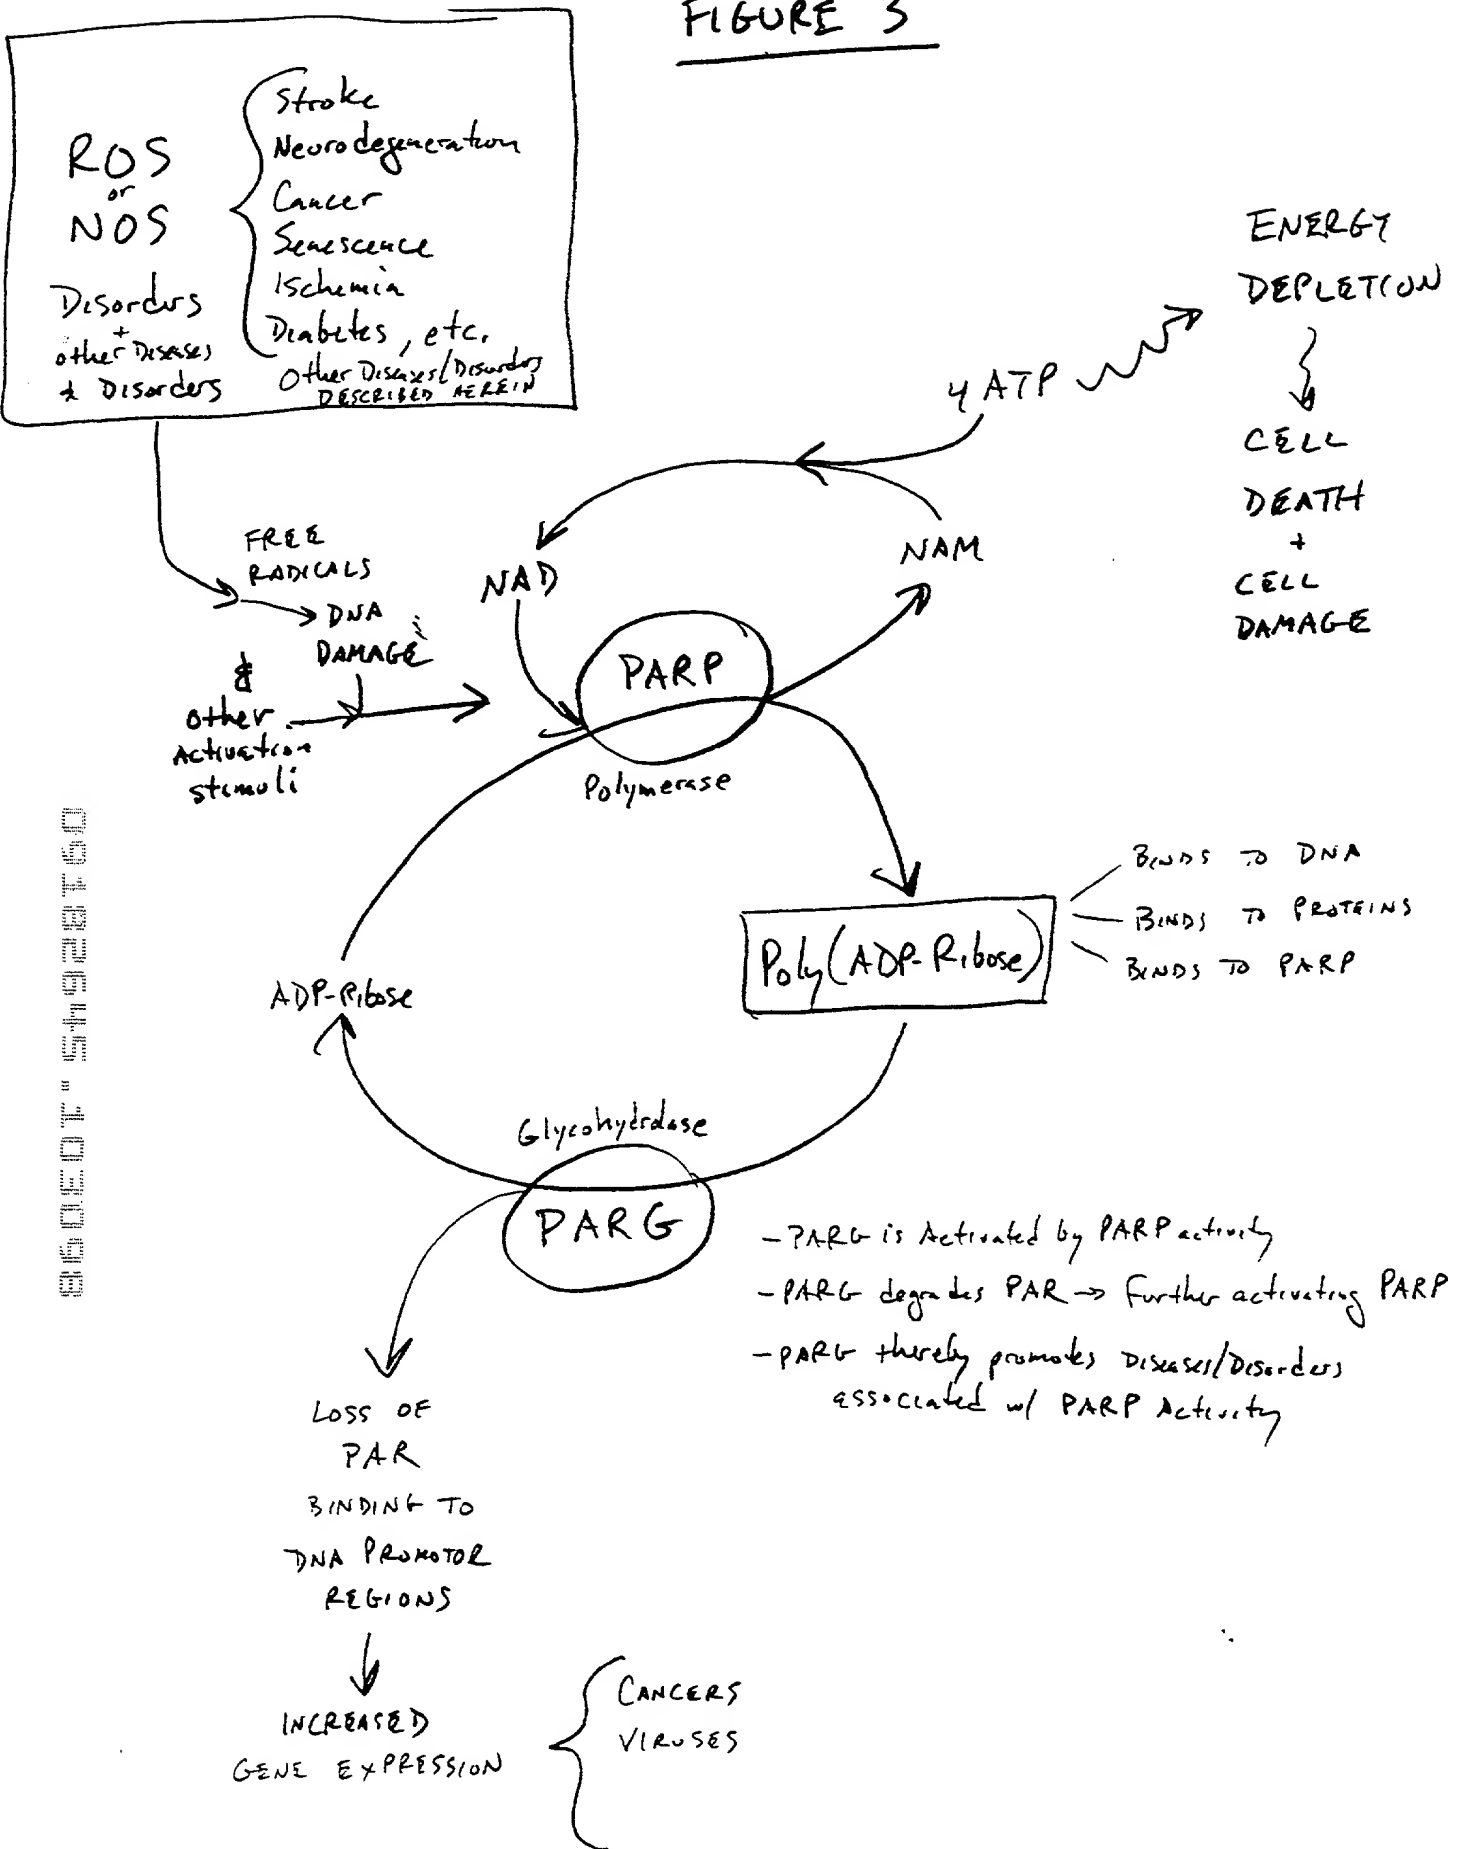 FIGURE 3
ROS
or
NOS
Disorders
+
other Diseases
& Disorders
Stroke
Neurodegeneration
Cancer
Senescence
Ischemia
Diabetes, etc.
Other Diseases/Disorders
DESCRIBED HEREIN
ENERGY
DEPLETION
CELL
DEATH
+
CELL
DAMAGE
4 ATP
NAM
NAD
FREE
RADICALS
DNA
DAMAGE
&
Other
Activation
stimuli
PARP
Polymerase
Poly(ADP-Ribose)
BINDS TO DNA
BINDS TO PROTEINS
BINDS TO PARP
ADP-Ribose
Glycohydrolase
PARG
- PARG is Activated by PARP activity
- PARG degrades PAR → Further activating PARP
- PARG thereby promotes Diseases/Disorders
associated w/ PARP Activity
LOSS OF
PAR
BINDING TO
DNA PROMOTOR
REGIONS
INCREASED
GENE EXPRESSION
CANCERS
VIRUSES
09182645.103098